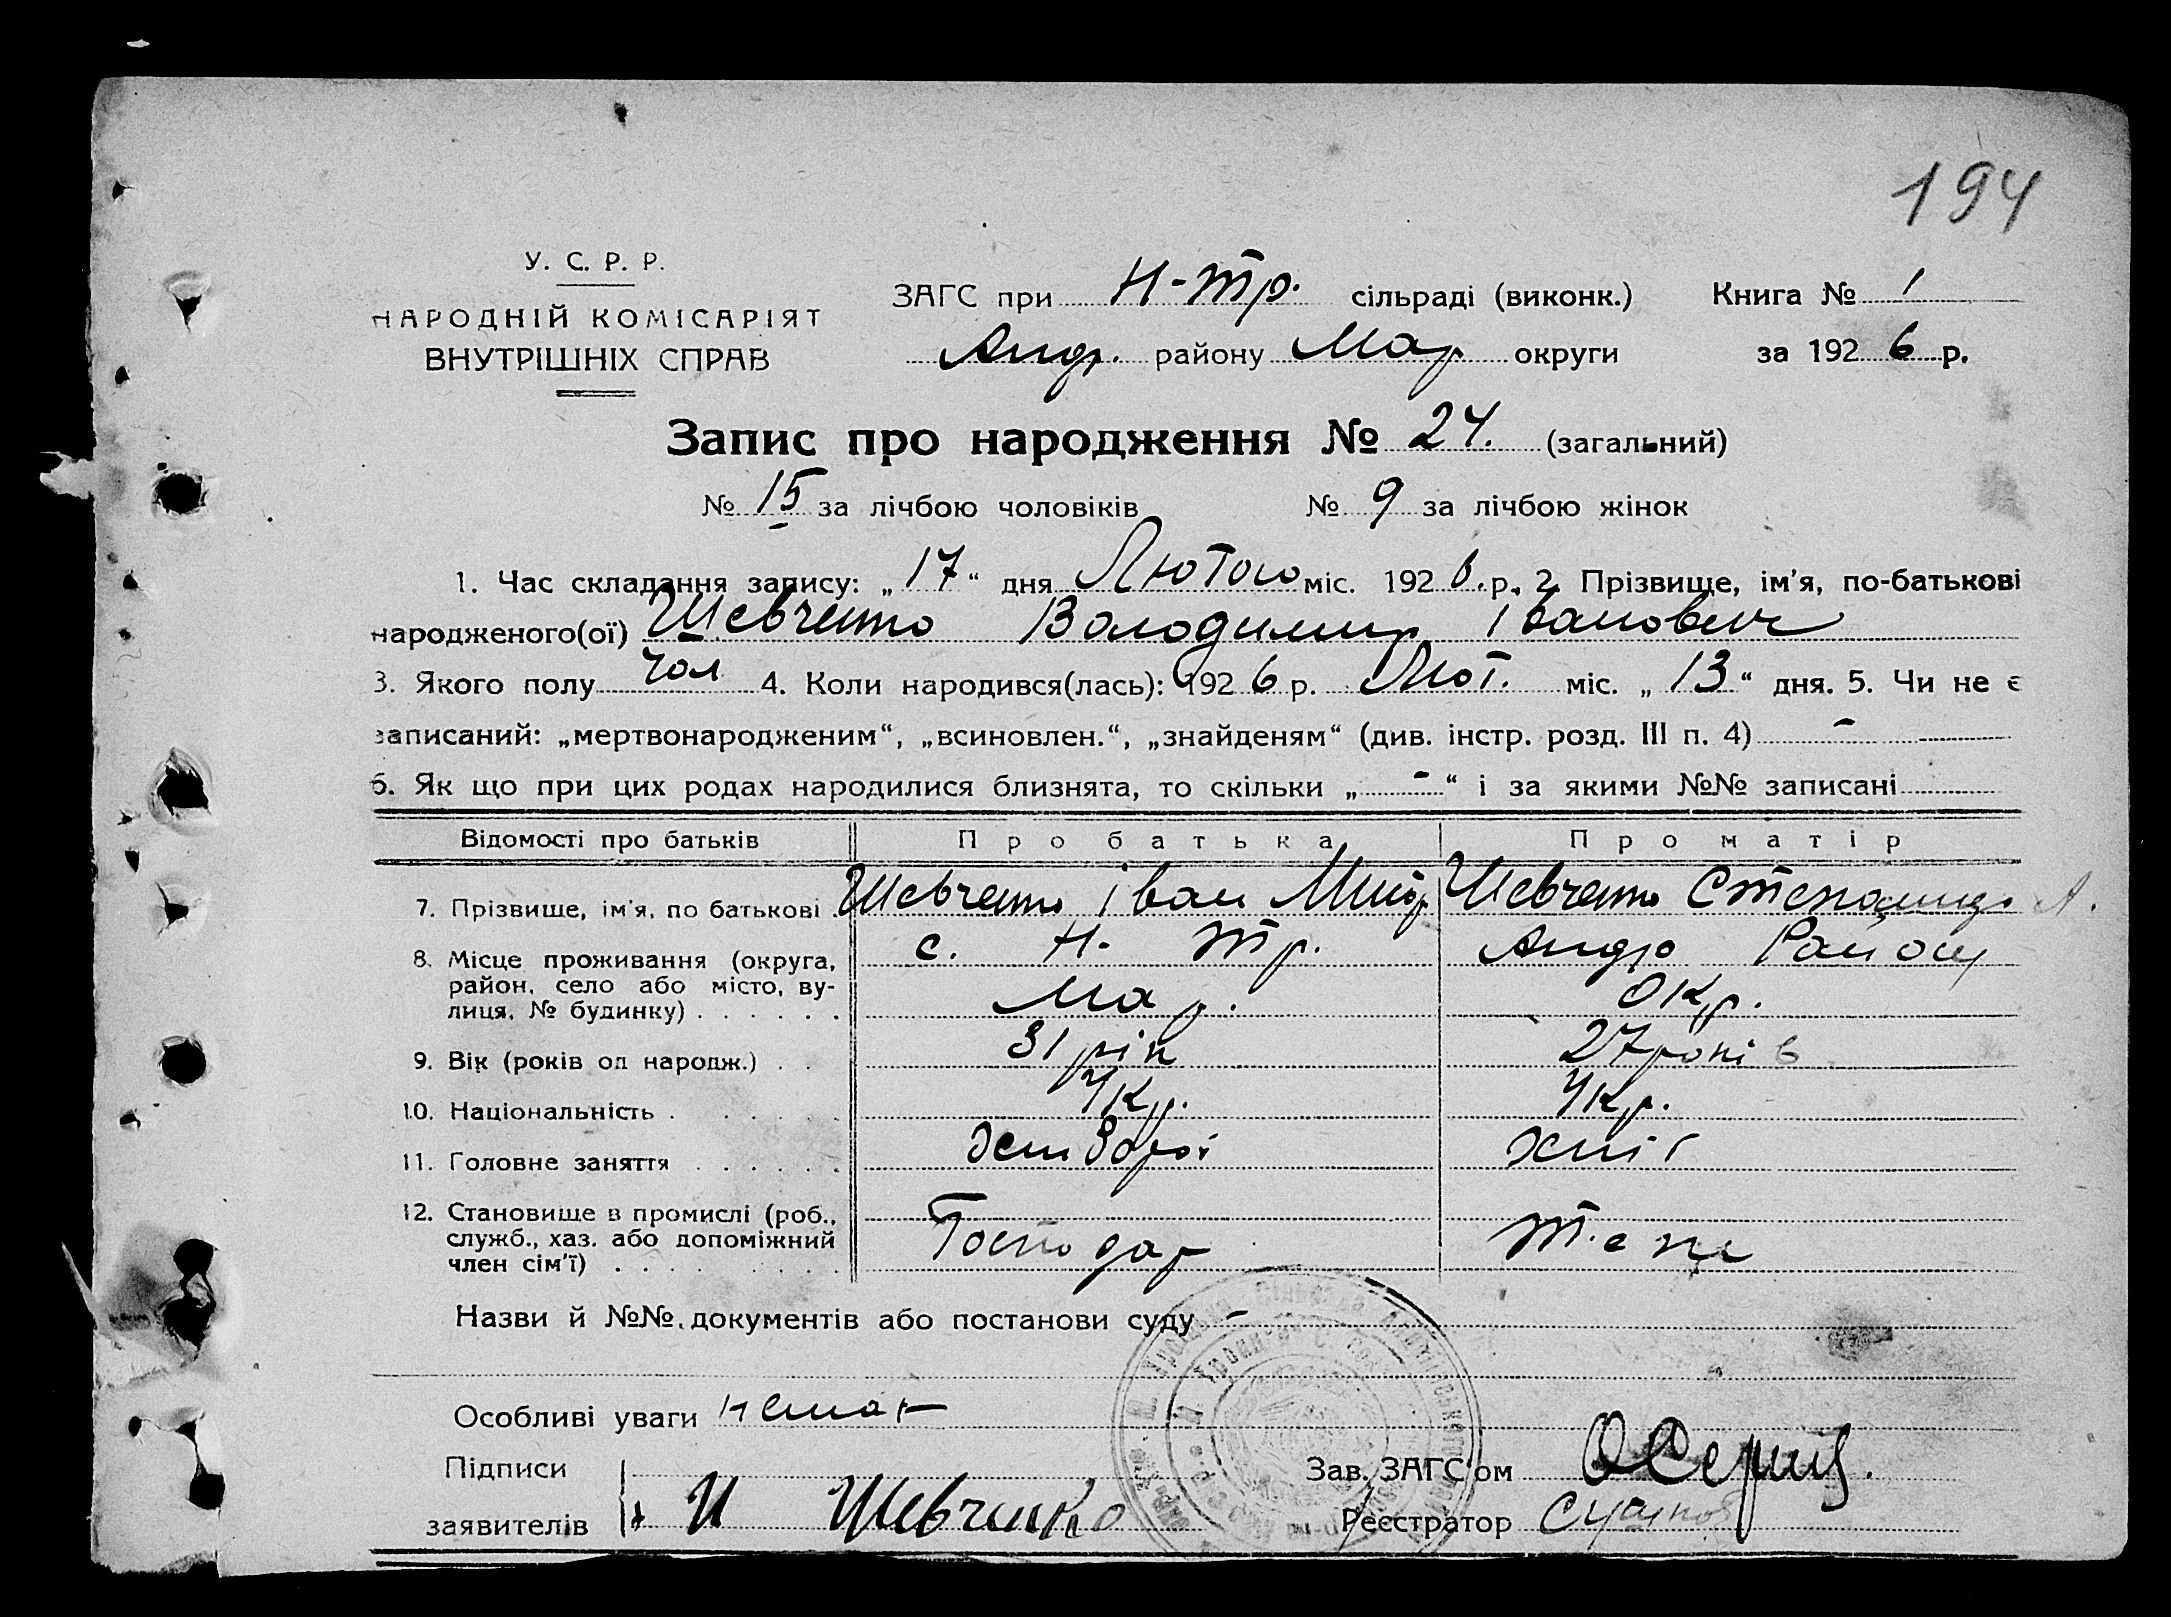 194
У. С. Р. Р.
НАРОДНІЙ КОМІСАРІЯТ
ВНУТРІШНІХ СПРАВ
ЗАГС при Н-Тр. сільраді (виконк.) Книга № 1
Андр. району Мар. округи за 1926 р.
Запис про народження № 24. (загальний)
№ 15 за лічбою чоловіків № 9 за лічбою жінок
1. Час складання запису: „17“ дня Лютого міс. 1926. р. 2. Прізвище, ім'я, по-батькові
народженого(ої) Шевченко Володимир Іванович
3. Якого полу чол 4. Коли народився(лась): 1926 р. Лют. міс. „13“ дня. 5. Чи не є
записаний: „мертвонародженим“, „всиновлен.“, „знайденям“ (див. інстр. розд. III п. 4) -
6. Як що при цих родах народилися близнята, то скільки „-“ і за якими №№ записані
Відомості про батьків Про батька Про матір
7. Прізвище, ім'я, по батькові Шевченко Іван Шевченко Степанида А.
8. Місце проживання (округа, с. Н- Тр. Андр Району
район, село або місто, ву-
лиця, № будинку) Мар. Окр.
9. Вік (років од народж.) 31 рік 27 років
10. Національність Укр. Укр.
11. Головне заняття
12. Становище в промислі (роб.,
служб., хаз. або допоміжний Господар
член сім'ї)
Назви й №№ документів або постанови суду -
Особливі уваги немає
Підписи Зав. ЗАГС'ом
заявителів И Шевченко Реєстратор